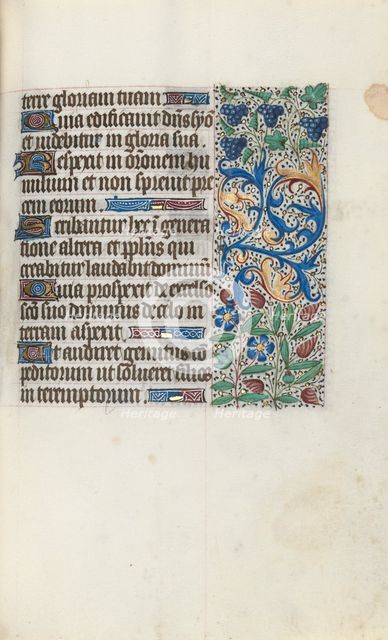 terre gloriam tuam
Quia edificauit dn̄s syō
et uidebitur in gloria sua.
Respexit in or̄onem hu
milium et non spreuit pre
cem eorum.
Scribantur hec ī genera
tione altera et pl̄us qui
creabitur laudabit dominū
Quia prospexit de excelso
sc̄o suo dominus de celo in
terram aspexit
Ut audiret gemitus cō
peditorum ut solueret filios
interemptorum.
Heritage
Heritage